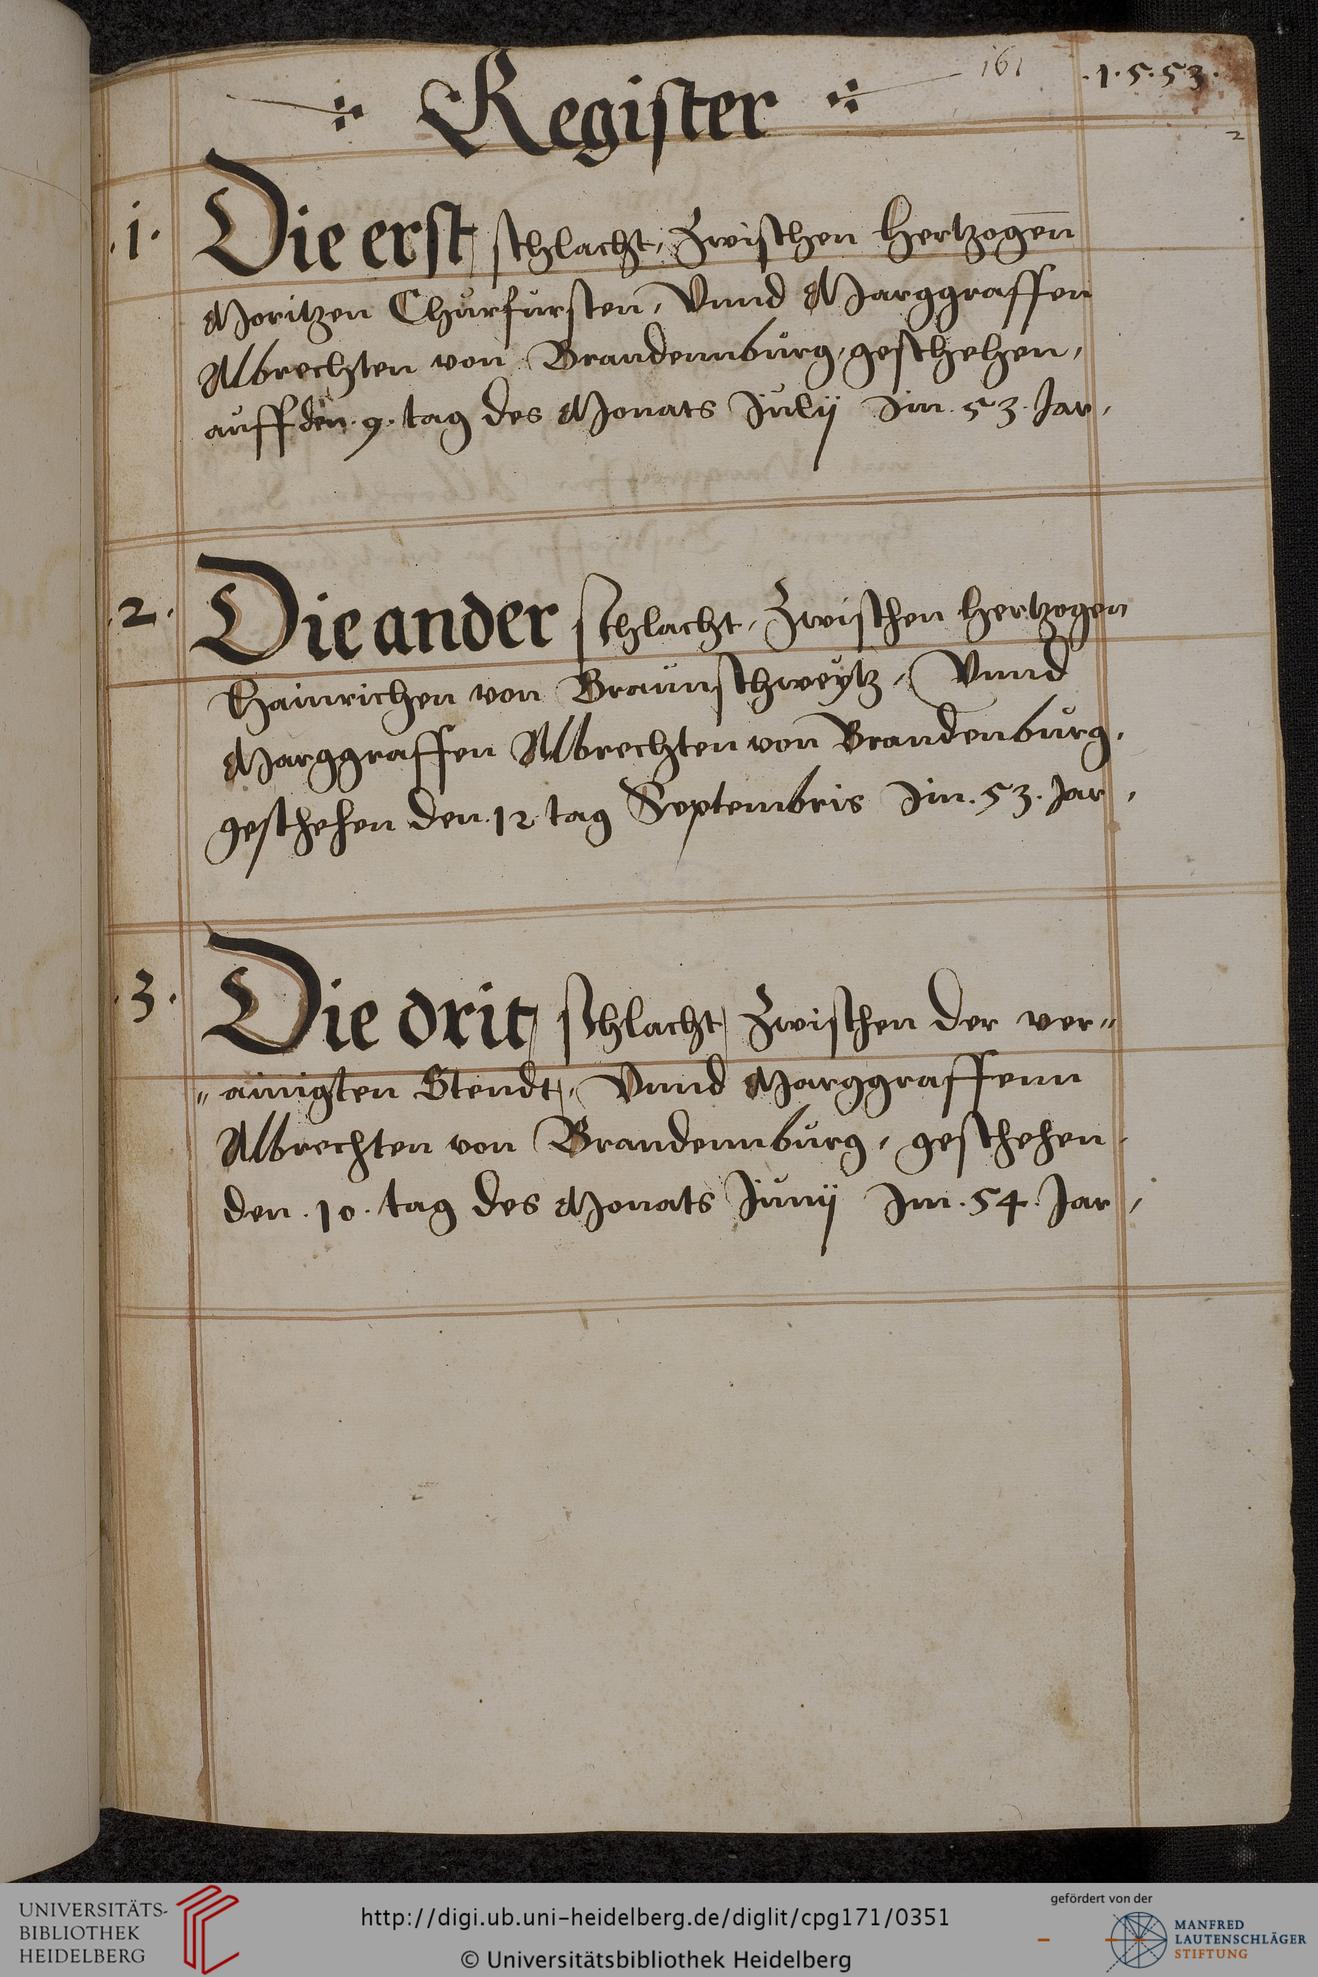 Register
161
.1.5.53.
2
.1. Die erst schlacht, Zwischen Hertzogen̄
Moritzen Churfürsten, Vnnd Marggraffen
Albrechten von Brandennburg, geschehen,
auff den .9. tag des Monats Julij Im .53. Jar,
.2. Die ander schlacht, Zwischen Hertzogen
Hainrichen von Braunschweytz, Vnnd
Marggraffen Albrechten von Brandenburg,
geschehen den .12. tag Septembris Im .53. Jar,
.3. Die drit schlacht Zwischen der ver„
„ainigten Stendt, Vnnd Marggraffenn
Albrechten von Brandennburg, geschehen
den .10. tag des Monats Junij Im .54. Jar,
UNIVERSITÄTS-
BIBLIOTHEK
HEIDELBERG
http://digi.ub.uni-heidelberg.de/diglit/cpg171/0351
© Universitätsbibliothek Heidelberg
gefördert von der
MANFRED
LAUTENSCHLÄGER
STIFTUNG